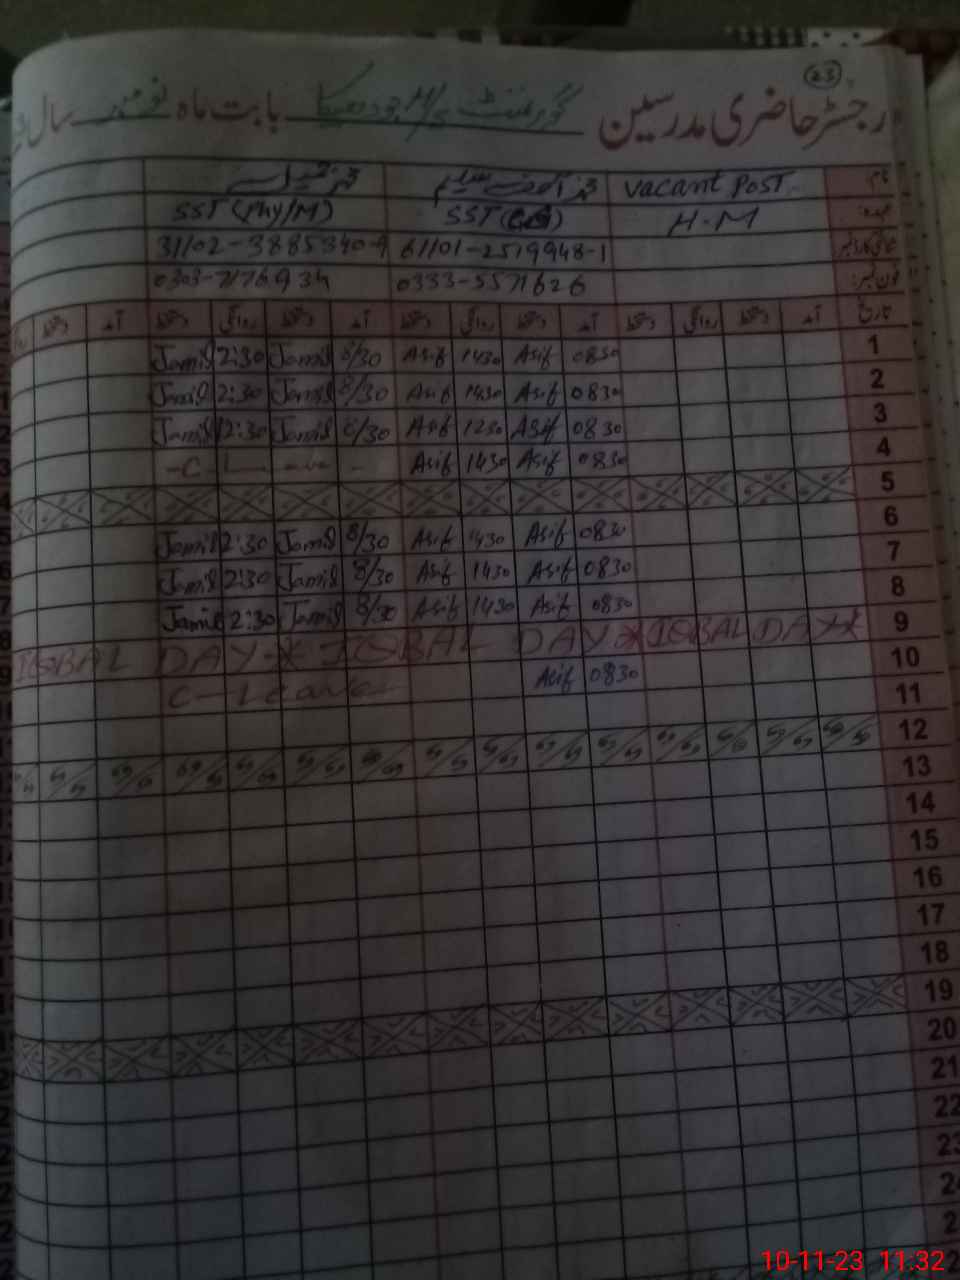 23
رجسٹر حاضری مدرسین گورنمنٹ بابت ماہ نومبر سال
نام Vacant Post
عہدہ H.M SST SST (Phy/M)
61101-2519948-1 31102-3885340-9
فون نمبر 0333-5571626 0303-7176934
تاریخ آمد دستخط روانگی دستخط آمد دستخط روانگی دستخط آمد دستخط روانگی دستخط آمد دستخط
1 0830 Asif 1430 Asif 8/30 Jamil 2:30 Jamil
2 0830 Asif 1430 Asif 8/30 Jamil 2:30 Jamil
3 0830 Asif 1230 Asif 8/30 Jamil 12:30 Jamil
4 0830 Asif 1430 Asif - C L
5
6 0830 Asif 1430 Asif 8/30 Jamil 2:30 Jamil
7 0830 Asif 1430 Asif 8/30 Jamil 2:30 Jamil
8 0830 Asif 1430 Asif 8/30 Jamil 2:30 Jamil
9 IQBAL DAY * IQBAL DAY * IQBAL DAY *
10 0830 Asif C - Leave
11
12
13
14
15
16
17
18
19
20
21
22
23
10-11-23 11:32